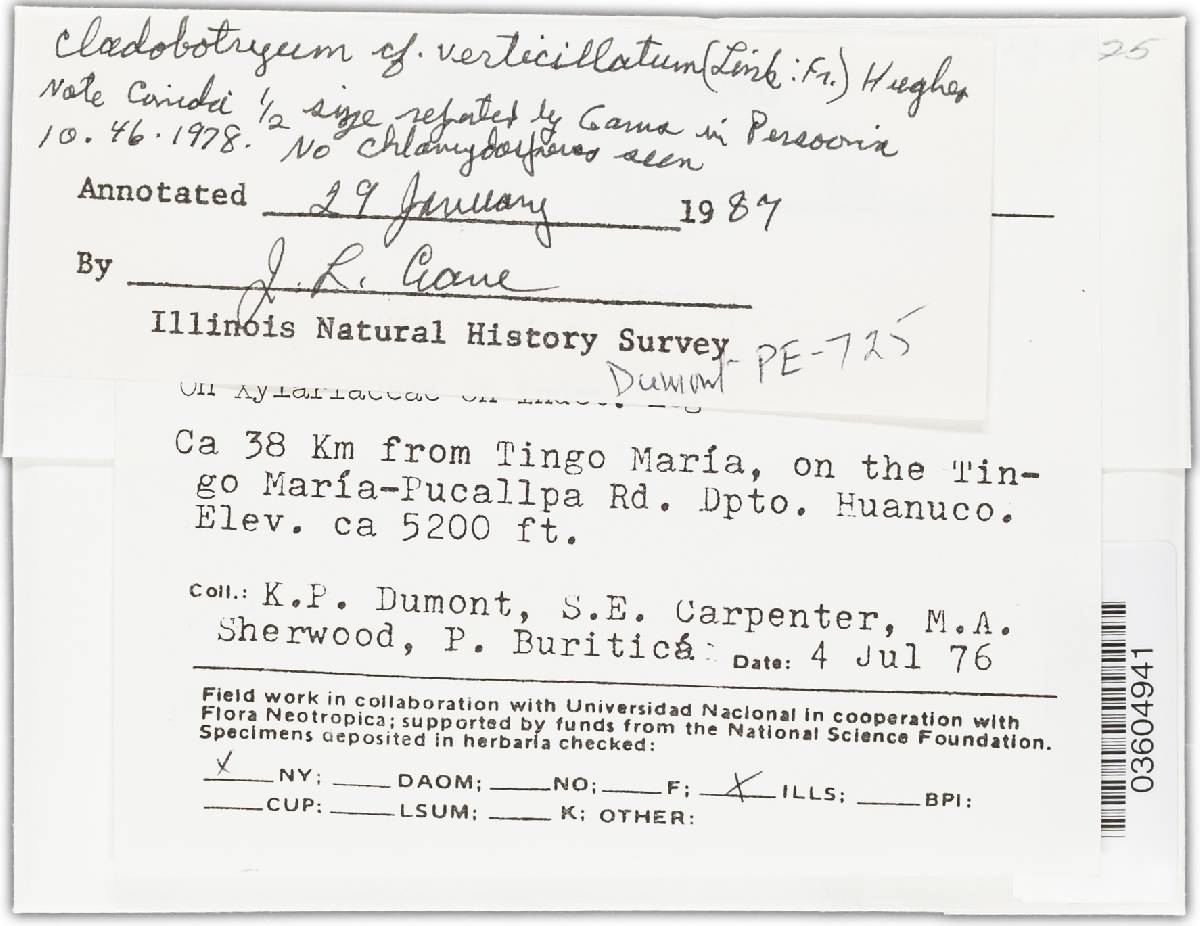 Cladobotryum cf. verticillatum (Link: Fr.) Hughes
Note Conidia 1/2 size reported by Gams in Persoonia
10. 46. 1978. No Chlamydospores seen
Annotated 29 January 1987
By J. L. Crane
Illinois Natural History Survey
Dumont PE-725
25
On Xylariaceae on
Ca 38 Km from Tingo María, on the Tin-
go María-Pucallpa Rd. Dpto. Huanuco.
Elev. ca 5200 ft.
Coll.: K.P. Dumont, S.E. Carpenter, M.A.
Sherwood, P. Buriticá Date: 4 Jul 76
Field work in collaboration with Universidad Nacional in cooperation with
Flora Neotropica; supported by funds from the National Science Foundation.
Specimens deposited in herbaria checked:
X NY; ____ DAOM; ____ NO; ____ F; X ILLS; ____ BPI:
____ CUP: ____ LSUM; ____ K; OTHER:
03604941